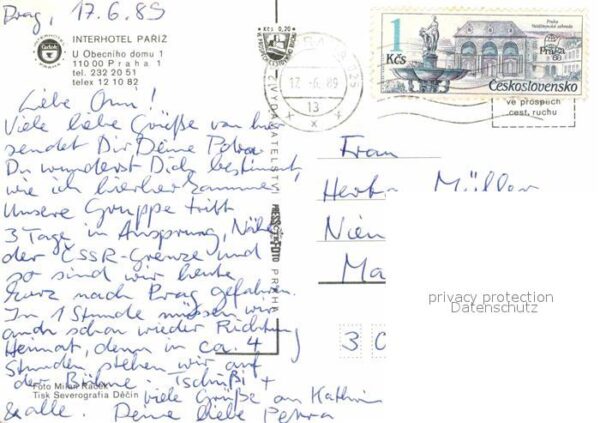 Prag, 17.6.89
INTERHOTEL PAŘÍŽ
U Obecního domu 1
110 00 P r a h a 1
tel. 232 20 51
telex 12 10 82
Liebe Omi!
Viele liebe Grüße von hier
sendet Dir Deine Petra
Du wunderst Dich bestimmt,
wie ich hierher komme.
Unsere Gruppe tritt
3 Tage in Ansprung, Nähe
der ČSSR-Grenze und
so sind wir heute
kurz nach Prag gefahren.
In 1 Stunde müssen wir
auch schon wieder Richtung
Heimat, denn in ca. 4
Stunden stehen wir auf
der Bühne. Tschüßi +
viele Grüße an Kathrin
& alle. Deine liebe Petra
Foto Milan Raček
Tisk Severografia Děčín
Kčs 0,20
PRAHA
17.-6.89
13
1
Kčs
Praha
Valdštejnská zahrada
Praha
88
Československo
ve prospěch
cest. ruchu
Frau
Herta Müller
Nien
Ma
3
privacy protection
Datenschutz